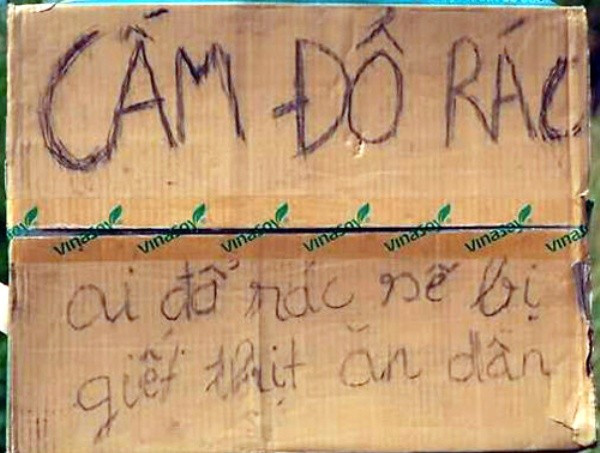 CẤM ĐỔ RÁC
Vinasoy Vinasoy Vinasoy Vinasoy Vinasoy Vinasoy Vinaso
ai đổ rác sẽ bị
giết thịt ăn dần